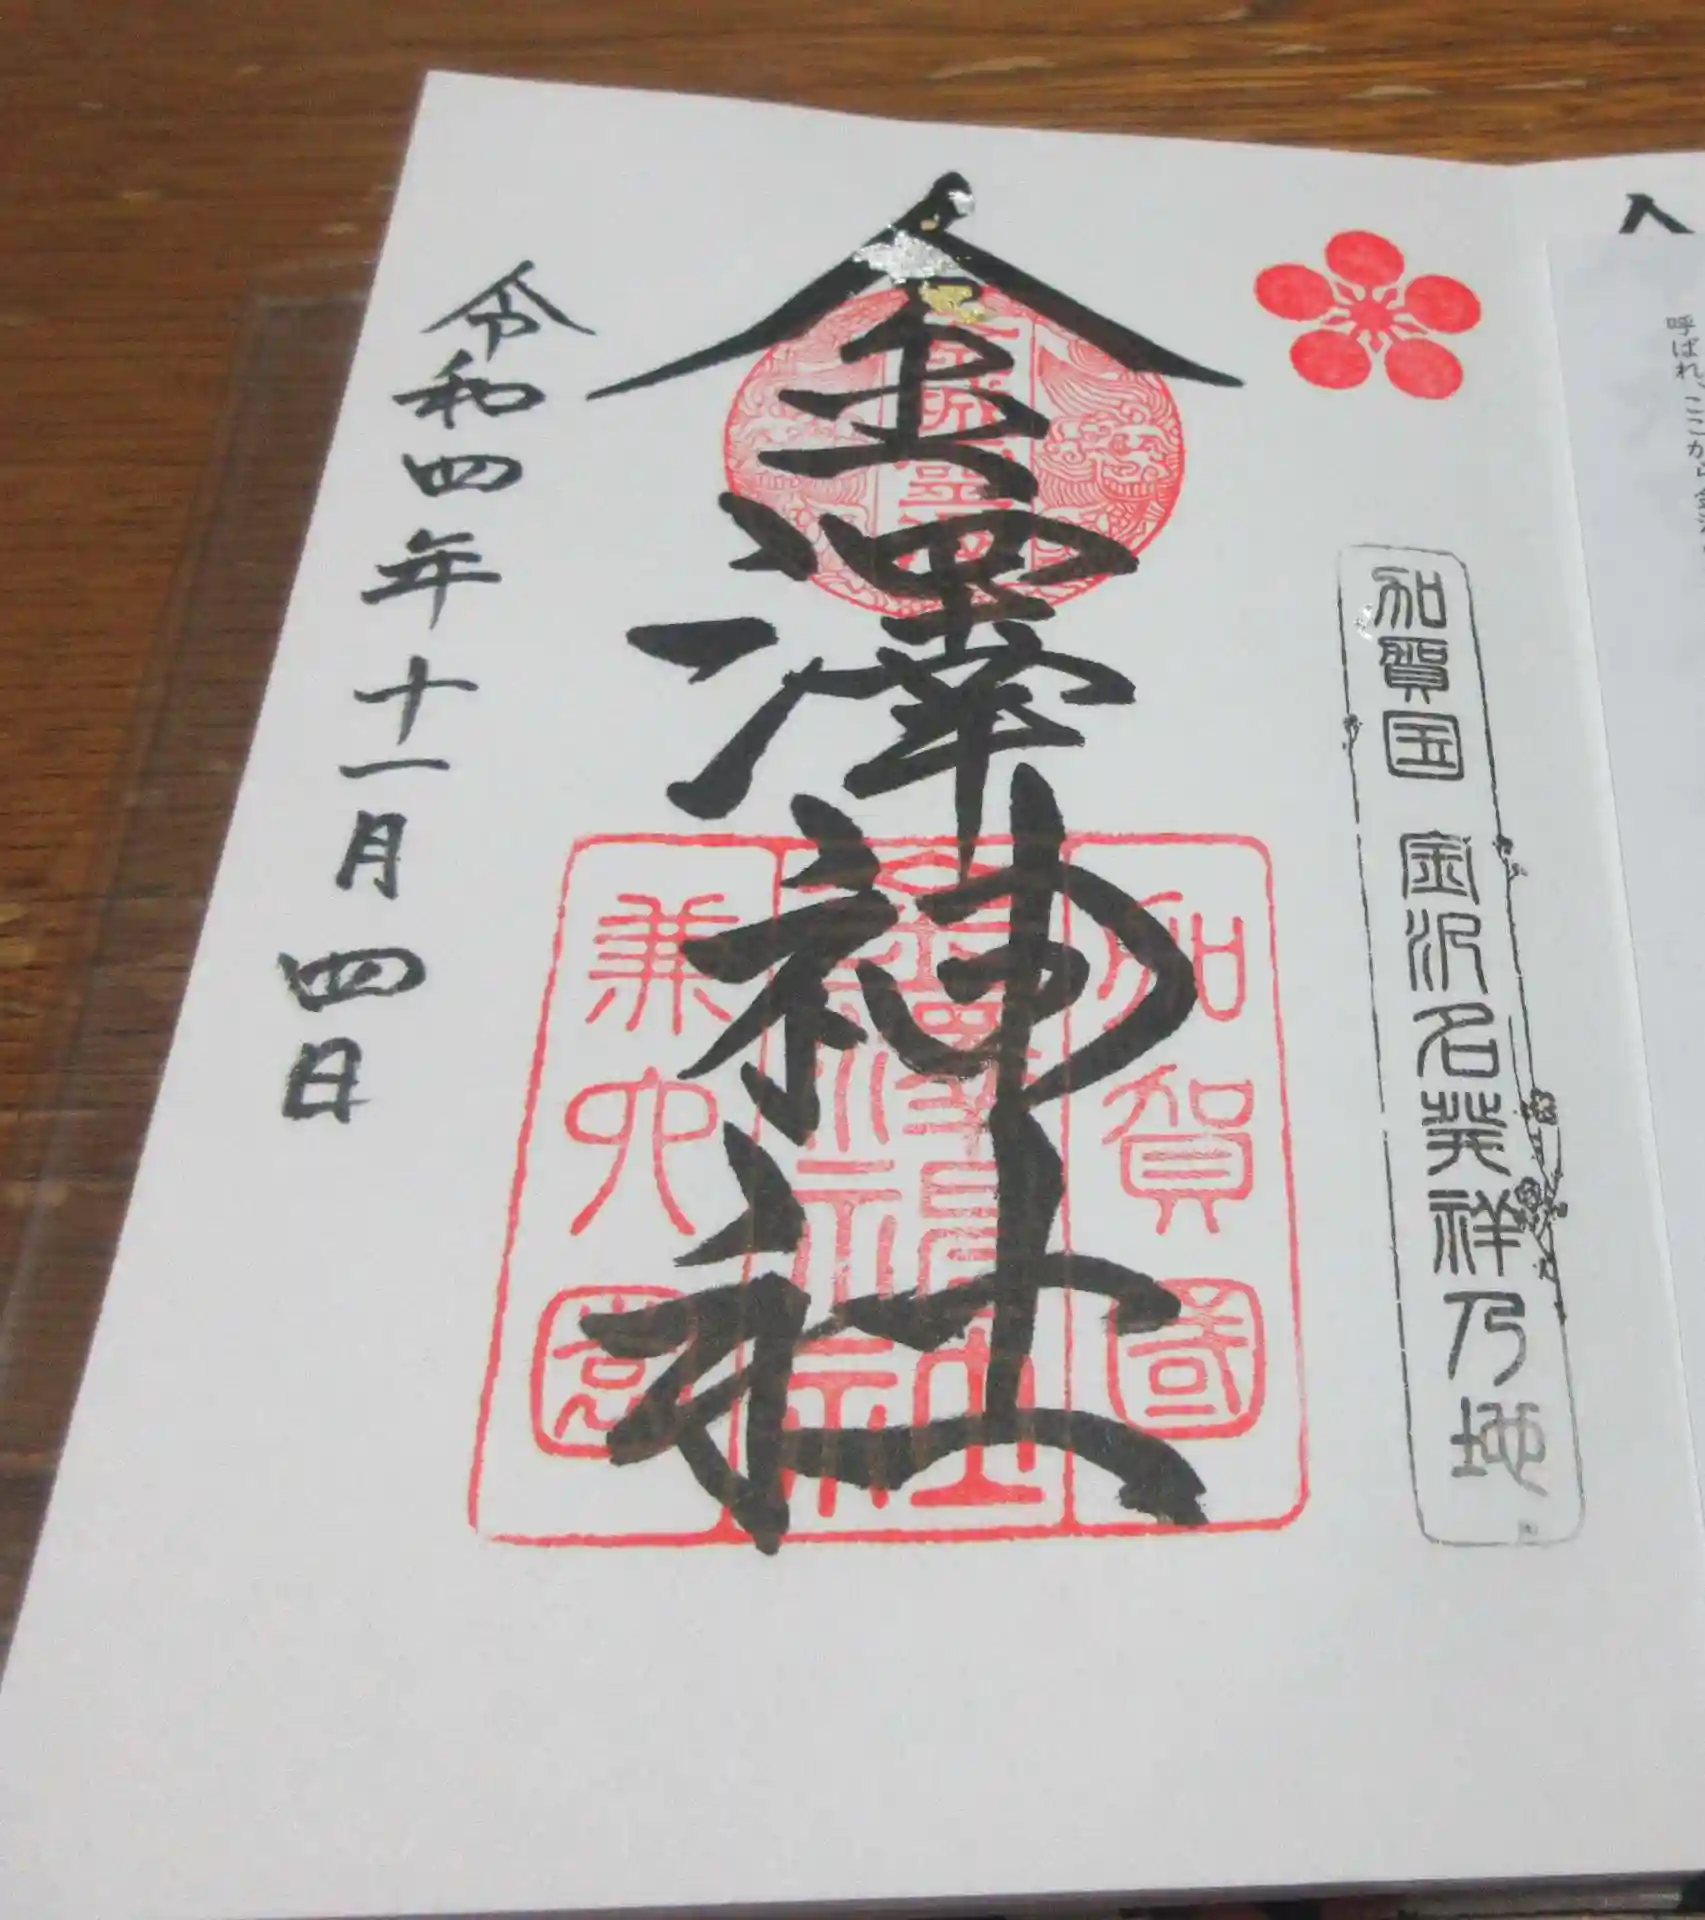 加賀国 金沢名発祥乃地
金澤神社
加賀國
金澤神社
兼六園
令和四年十一月四日
呼ばれ、ここから金